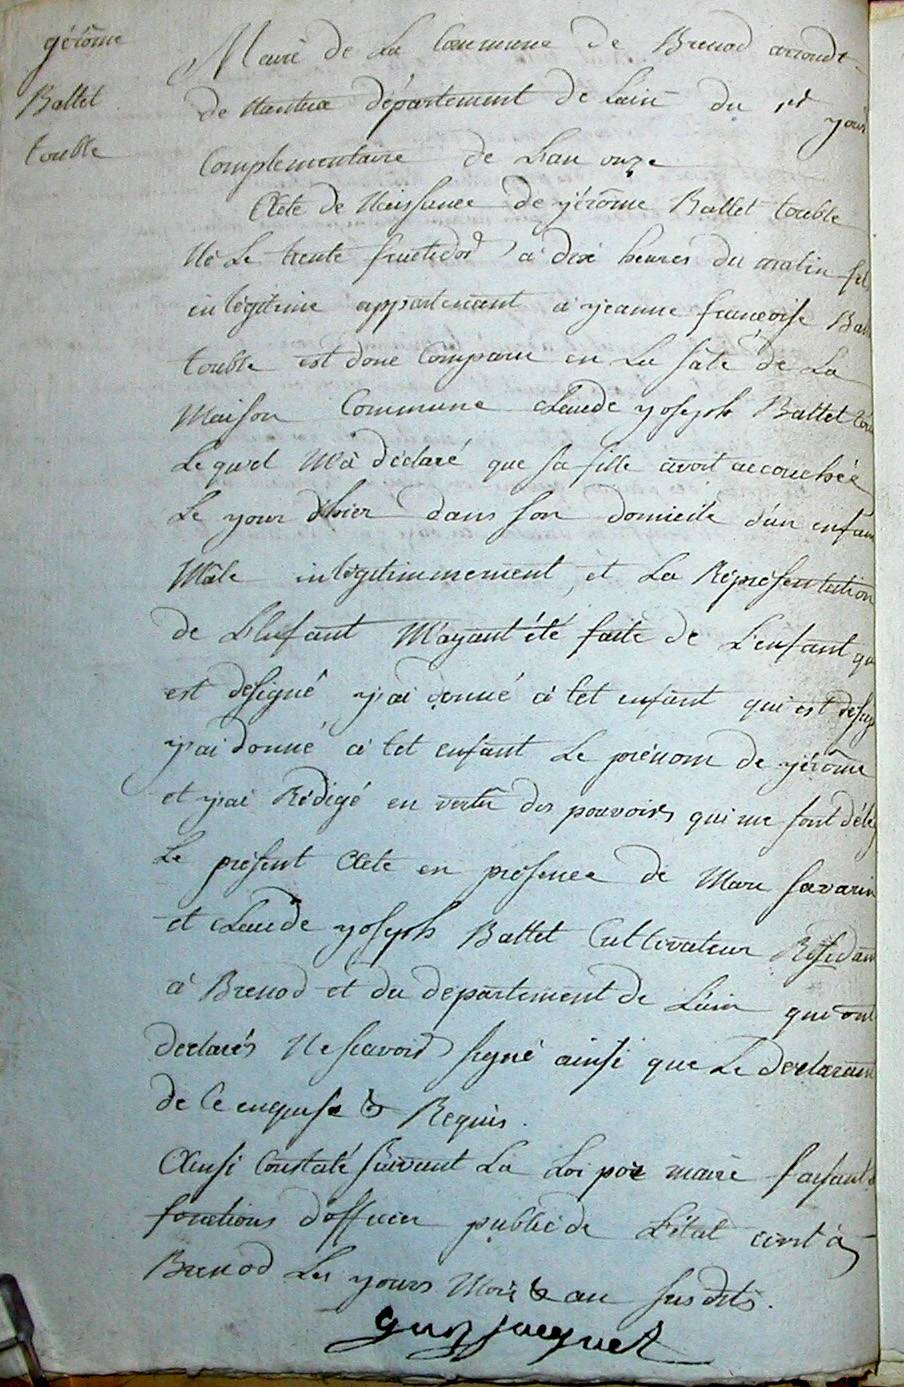 gérôme
Ballet
touble
Maire de La Commune de Brenod arrondt
de Nantua département de Lain du 1er your
Complementaire de Lan onze
Acte de Naissance de yérôme Ballet touble
Né Le trente fructidor à dix heures du matin fil
inlégitime appartenant à yeanne françoise Ball
touble est donc Comparu en La sale de La
Maison Commune Claude yoseph Ballet tou
Lequel M'a déclaré que sa fille avoit accouchée
Le your d'hier dans son domicile d'un enfan
Mâle inlégitimmement, et La Représentation
de L'Enfant M'ayant été faite de L'enfant qui
est désigné y'ai donné à Cet enfant qui est désig
y'ai donné à Cet enfant Le prénom de yérôme
et y'ai Rédigé en vertu des pouvoirs qui me sont délé
Le présent Acte en présence de Marc Savarin
et Claude yoseph Ballet Cultivateur Résidan
à Brenod et du département de Lain qui ont
declarés Ne scavoir signé ainsi que Le declarant
de Ce enquis & Requis.
Ainsi Constaté suivant La Loi par maire faisant
fonctions d'officier public de L'état civil à
Brenod Les yours Mois & an susdits.
guy jacquet